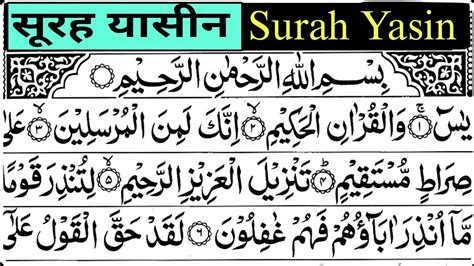 सूरह यासीन Surah Yasin
بِسْمِ اللهِ الرَّحْمٰنِ الرَّحِيْمِ
يٰسٓ ۚ﴿۱﴾ وَالْقُرْاٰنِ الْحَكِيْمِ ۙ﴿۲﴾ اِنَّكَ لَمِنَ الْمُرْسَلِيْنَ ۙ﴿۳﴾ عَلٰى
صِرَاطٍ مُّسْتَقِيْمٍ ؕ﴿۴﴾ تَنْزِيْلَ الْعَزِيْزِ الرَّحِيْمِ ۙ﴿۵﴾ لِتُنْذِرَ قَوْمًا
مَّاۤ اُنْذِرَ اٰبَآؤُهُمْ فَهُمْ غٰفِلُوْنَ ﴿۶﴾ لَقَدْ حَقَّ الْقَوْلُ عَلٰٓى